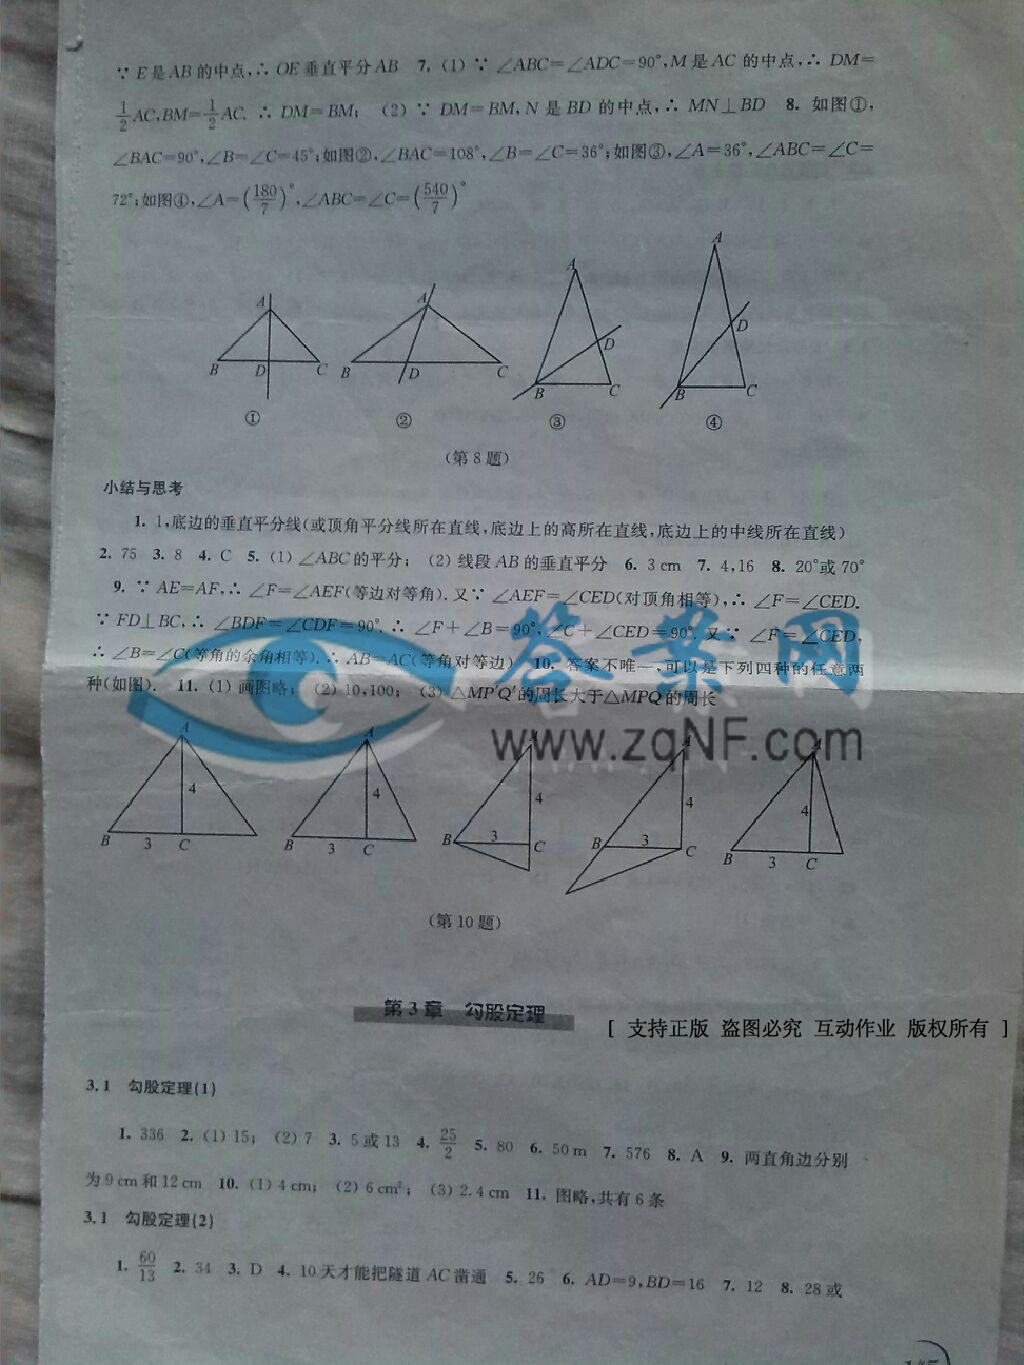 ∵ E是AB的中点,∴ OE垂直平分AB  7. (1) ∵ ∠ABC=∠ADC=90°,M是AC的中点,∴ DM=
1/2 AC,BM=1/2 AC. ∴ DM=BM; (2) ∵ DM=BM,N是BD的中点,∴ MN⊥BD  8. 如图①,
∠BAC=90°,∠B=∠C=45°;如图②,∠BAC=108°,∠B=∠C=36°;如图③,∠A=36°,∠ABC=∠C=
72°;如图④,∠A=(180/7)°,∠ABC=∠C=(540/7)°
A B D C ①
A B D C ②
A D B C ③
A D B C ④
(第8题)
小结与思考
1. 1,底边的垂直平分线(或顶角平分线所在直线,底边上的高所在直线,底边上的中线所在直线)
2. 75  3. 8  4. C  5. (1) ∠ABC的平分; (2) 线段AB的垂直平分  6. 3 cm  7. 4,16  8. 20°或70°
9. ∵ AE=AF,∴ ∠F=∠AEF(等边对等角).又∵ ∠AEF=∠CED(对顶角相等),∴ ∠F=∠CED.
∵ FD⊥BC,∴ ∠BDF=∠CDF=90°. ∴ ∠F+∠B=90°,∠C+∠CED=90°. 又∵ ∠F=∠CED,
∴ ∠B=∠C(等角的余角相等). ∴ AB=AC(等角对等边)  10. 答案不唯一,可以是下列四种的任意两
种(如图).  11. (1) 画图略; (2) 10,100; (3) △MP'Q'的周长大于△MPQ的周长
答案网
www.zqNF.com
A 4 B 3 C
A 4 B 3 C
A 4 B 3 C
A 4 B 3 C
A 4 B 3 C
(第10题)
第3章 勾股定理
[ 支持正版 盗图必究 互动作业 版权所有 ]
3.1 勾股定理(1)
1. 336  2. (1) 15; (2) 7  3. 5或13  4. 25/2  5. 80  6. 50 m  7. 576  8. A  9. 两直角边分别
为9 cm和12 cm  10. (1) 4 cm; (2) 6 cm²; (3) 2.4 cm  11. 图略,共有6条
3.1 勾股定理(2)
1. 60/13  2. 34  3. D  4. 10天才能把隧道AC凿通  5. 26  6. AD=9,BD=16  7. 12  8. 28或